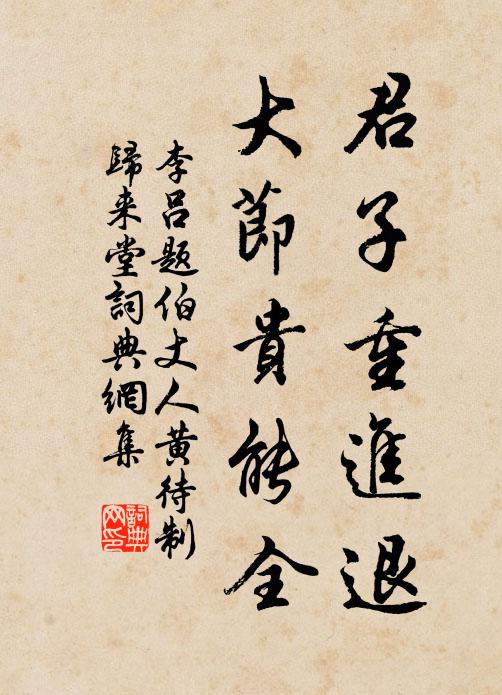 君子重進退
大節貴能全
李呂題伯丈人黄待制
歸来堂詞典網集
詞典网印